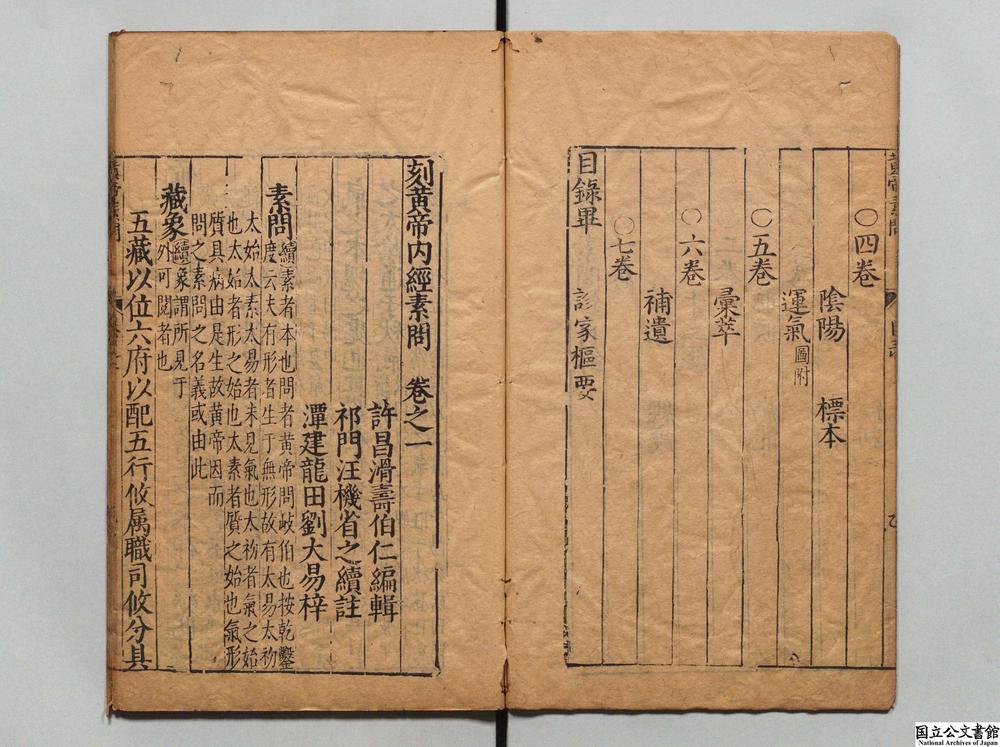 〇四卷
陰陽　標本
運氣圖附
〇五卷
彙萃
〇六卷
補遺
〇七卷
診家樞要
目錄畢
刻黃帝内經素問　卷之一
許昌滑壽伯仁編輯
祁門汪機省之續註
潭建龍田劉大易梓
素問續素者本也問者黃帝問岐伯也按乾鑿
度云夫有形者生于無形故有太易太初
太始太素太易者未見氣也太初者氣之始
也太始者形之始也太素者質之始也氣形
質具病由是生故黃帝因而
問之素問之名義或由此
藏象續象謂所見于
外可閱者也
五藏以位六府以配五行攸属職司攸分具
国立公文書館
National Archives of Japan